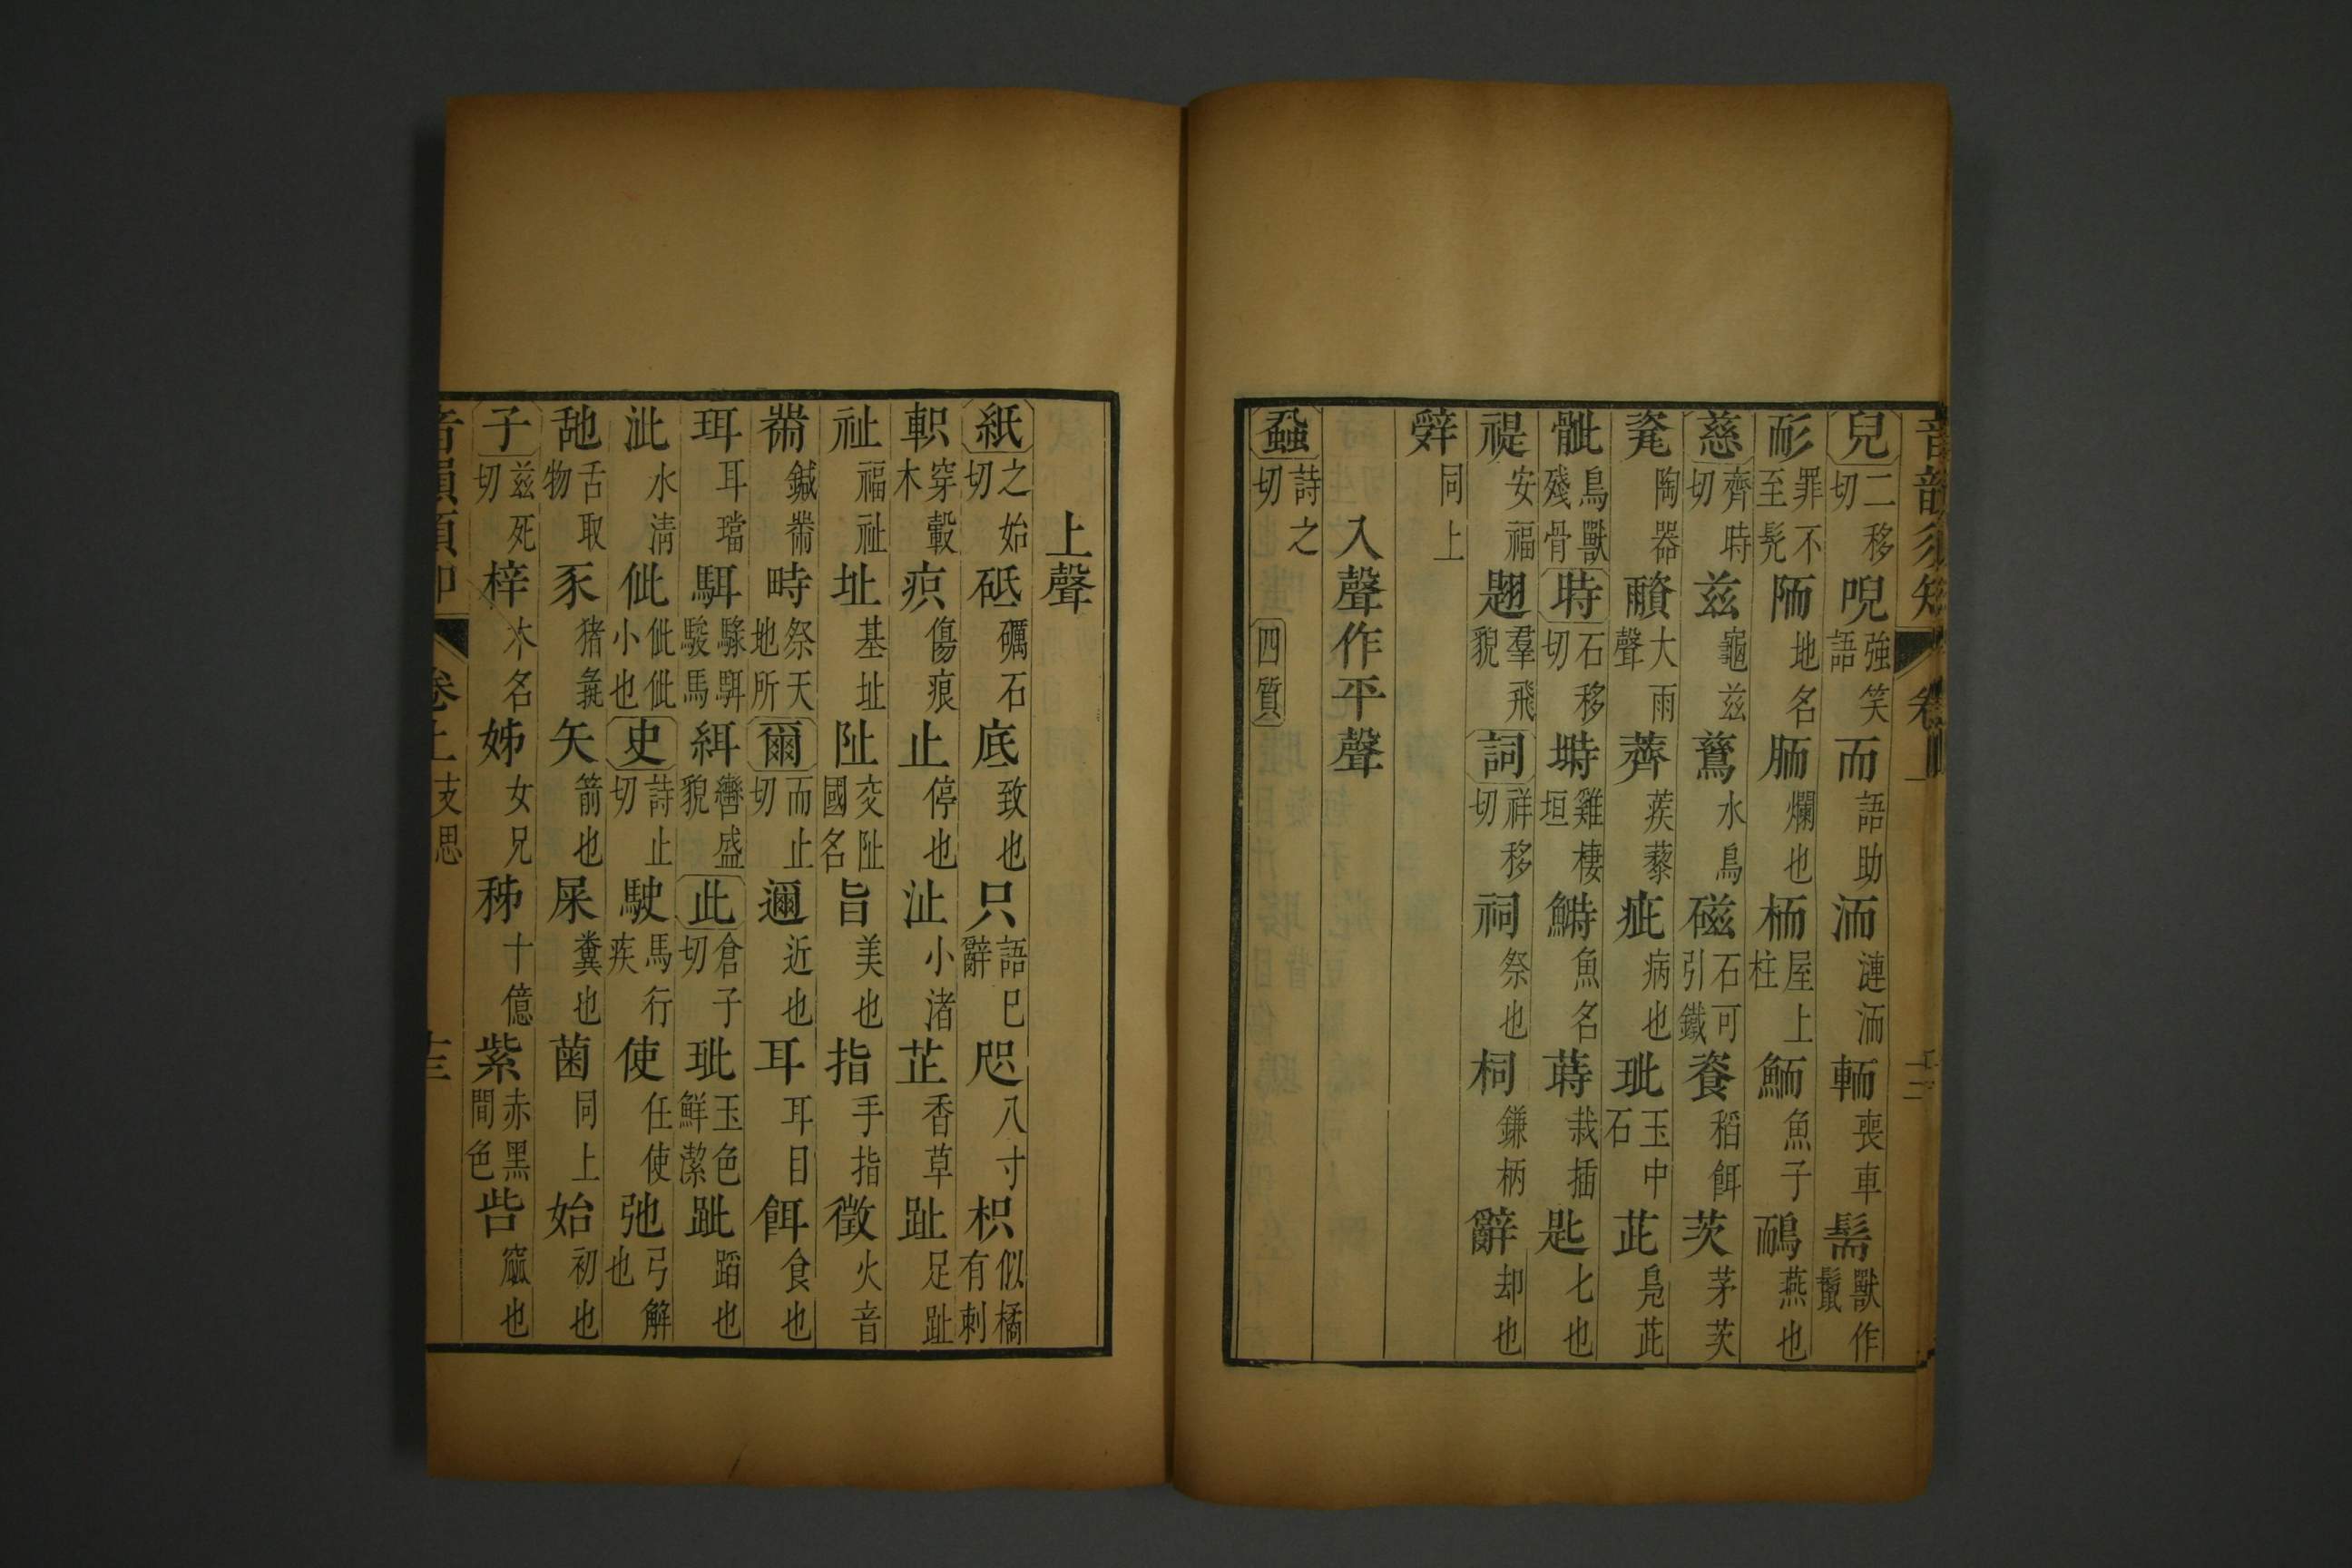 兒二移切唲強笑語而語助洏漣洏輀喪車髵獸作鬣
耏罪不至髡陑地名胹爛也栭屋上柱鮞魚子鴯燕也
慈齊時切兹龜兹鶿水鳥磁石可引鐵餈稻餌茨茅茨
瓷陶器𩆂大雨聲薺蒺藜疵病也玼玉中石茈鳧茈
骴鳥獸殘骨時石移切塒雞棲垣鰣魚名蒔栽插匙匕也
禔安福翅羣飛貌詞祥移切祠祭也柌鎌柄辭却也
辤同上
入聲作平聲
蝨詩之切四質
音韻須知 卷上
上聲
紙之始切砥礪石底致也只語巳辭咫八寸枳似橘有刺
軹穿轂木疻傷痕止停也沚小渚芷香草趾足趾
祉福祉址基址阯交阯國名旨美也指手指徵火音
黹鍼黹畤祭天地所爾而止切邇近也耳耳目餌食也
珥耳璫駬騄駬駿馬緷轡盛貌此倉子切玼玉色鮮潔跐蹈也
泚水清佌佌佌小也史詩止切駛馬行疾使任使弛弓解也
舐舌取物豕猪彘矢箭也屎糞也菌同上始初也
子兹死切梓木名姊女兄秭十億紫赤黑間色呰窳也
音韻須知 卷上 支思